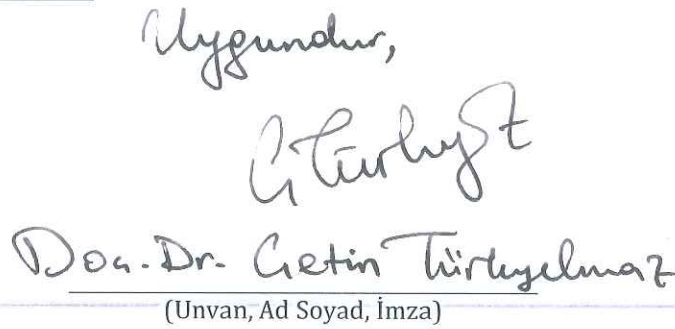 Uygundur,
Doç. Dr. Çetin Türkyılmaz
(Unvan, Ad Soyad, İmza)